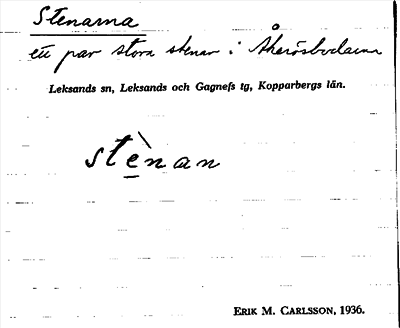 Stenarna
ett par stora stenar i Åkerösbodarna
Leksands sn, Leksands och Gagnefs tg, Kopparbergs län.
stè̱nan
ERIK M. CARLSSON, 1936.